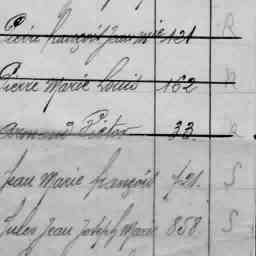 Pierre François Jean Marie 121 R
Pierre Marie Louis 162 R
Armand Victor 33 R
Jean Marie François 721. S
Jules Jean Joseph Marie 858. S